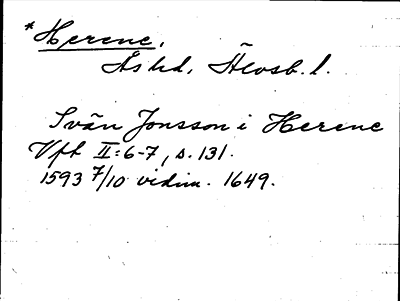 *Herene.
Ås hd, Älvsb. l.
Svän Jonsson i Herene
Vft II:6-7, s. 131.
1593 7/10 vidim. 1649.